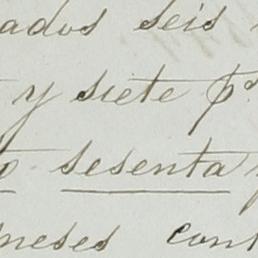 ados seis
y siete p.r
sesenta y
meses cont